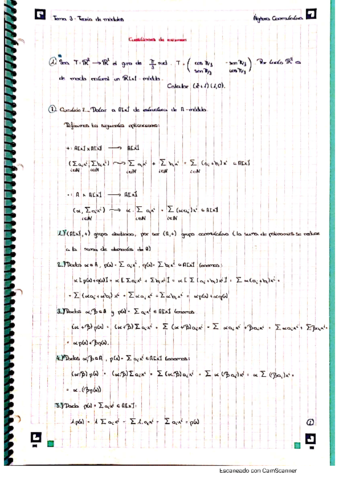 Tema 3 - Teoría de módulos
Álgebra Conmutativa
Cuestiones de examen
Sea T: ℝ² → ℝ² el giro de π/3 rad. T = ( cos π/3 - sen π/3
sen π/3 cos π/3 ) Por tanto ℝ² es
de modo natural un ℝ[x]-módulo.
Calcular (x+1)(1,0).
① Dotar a A[x] de estructura de A-módulo.
Definimos las siguientes aplicaciones:
+: A[x]×A[x] → A[x]
(Σ aᵢxⁱ, Σ bᵢxⁱ) ⟿ Σ aᵢxⁱ + Σ bᵢxⁱ = Σ (aᵢ+bᵢ)xⁱ ∈ A[x]
·: A × A[x] → A[x]
(α, Σ aᵢxⁱ) ⟿ α · Σ aᵢxⁱ = Σ (αaᵢ)xⁱ ∈ A[x]
1.) (A[x],+) grupo abeliano, por ser (A,+) grupo conmutativo (la suma de polinomios se reduce
a la suma de elementos de A)
2.) Dados α ∈ A, p(x) = Σ aᵢxⁱ, q(x) = Σ bᵢxⁱ ∈ A[x] tenemos:
α (p(x)+q(x)) = α ( Σ aᵢxⁱ + Σ bᵢxⁱ ) = α ( Σ (aᵢ+bᵢ)xⁱ ) = Σ α(aᵢ+bᵢ)xⁱ =
= Σ (αaᵢ + αbᵢ)xⁱ = Σ αaᵢxⁱ + Σ αbᵢxⁱ = αp(x) + αq(x)
3.) Dados α, β ∈ A y p(x) = Σ aᵢxⁱ ∈ A[x] tenemos:
(α+β) p(x) = (α+β) Σ aᵢxⁱ = Σ (α+β)aᵢxⁱ = Σ αaᵢxⁱ + βaᵢxⁱ = Σ αaᵢxⁱ + Σ βaᵢxⁱ =
αp(x) + βp(x).
4.) Dados α, β ∈ A, p(x) = Σ aᵢxⁱ ∈ A[x] tenemos:
(αβ) p(x) = (αβ) Σ aᵢxⁱ = Σ (αβ)aᵢxⁱ = Σ α(βaᵢ)xⁱ = α Σ (βaᵢ)xⁱ =
= α · (βp(x))
5.) Dado p(x) = Σ aᵢxⁱ ∈ A[x]:
1·p(x) = 1 Σ aᵢxⁱ = Σ 1·aᵢxⁱ = Σ aᵢxⁱ = p(x)
①
Escaneado con CamScanner